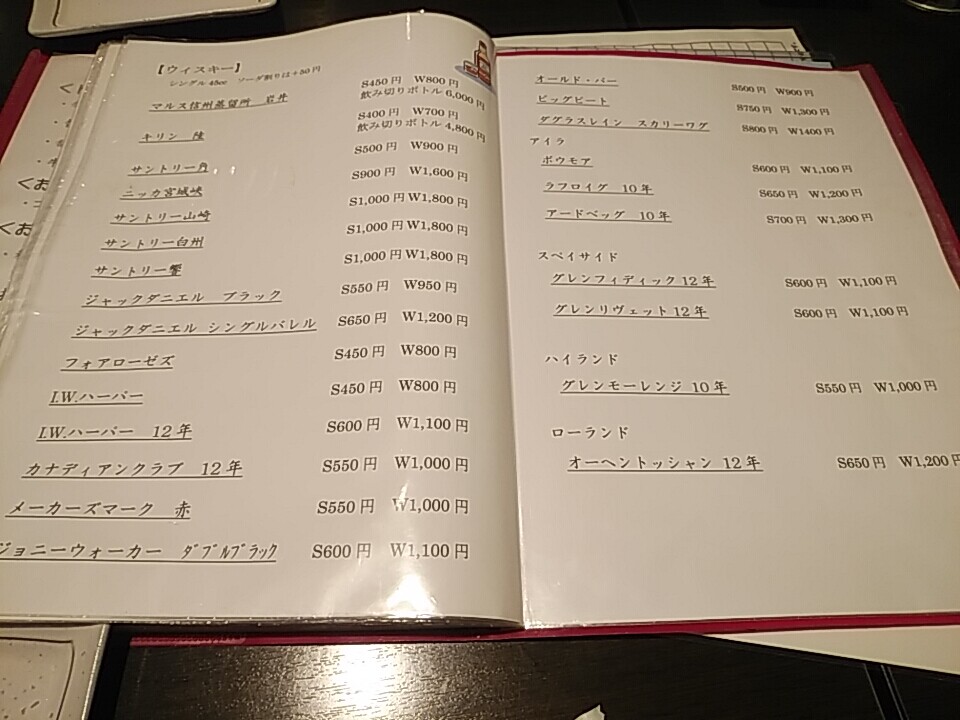 【ウィスキー】
シングル45cc ソーダ割りは+50円
マルス信州蒸留所 岩井 S450円 W800円
飲み切りボトル 6,000円
キリン 陸 S400円 W700円
飲み切りボトル 4,800円
サントリー角 S500円 W900円
ニッカ宮城峡 S900円 W1,600円
サントリー山崎 S1,000円 W1,800円
サントリー白州 S1,000円 W1,800円
サントリー響 S1,000円 W1,800円
ジャックダニエル ブラック S550円 W950円
ジャックダニエル シングルバレル S650円 W1,200円
フォアローゼズ S450円 W800円
I.W.ハーパー S450円 W800円
I.W.ハーパー 12年 S600円 W1,100円
カナディアンクラブ 12年 S550円 W1,000円
メーカーズマーク 赤 S550円 W1,000円
ジョニーウォーカー ダブルブラック S600円 W1,100円
オールド・パー S500円 W900円
ビッグピート S750円 W1,300円
ダグラスレイン スカリーワグ S800円 W1400円
アイラ
ボウモア S600円 W1,100円
ラフロイグ 10年 S650円 W1,200円
アードベッグ 10年 S700円 W1,300円
スペイサイド
グレンフィディック12年 S600円 W1,100円
グレンリヴェット12年 S600円 W1,100円
ハイランド
グレンモーレンジ 10年 S550円 W1,000円
ローランド
オーヘントッシャン 12年 S650円 W1,200円